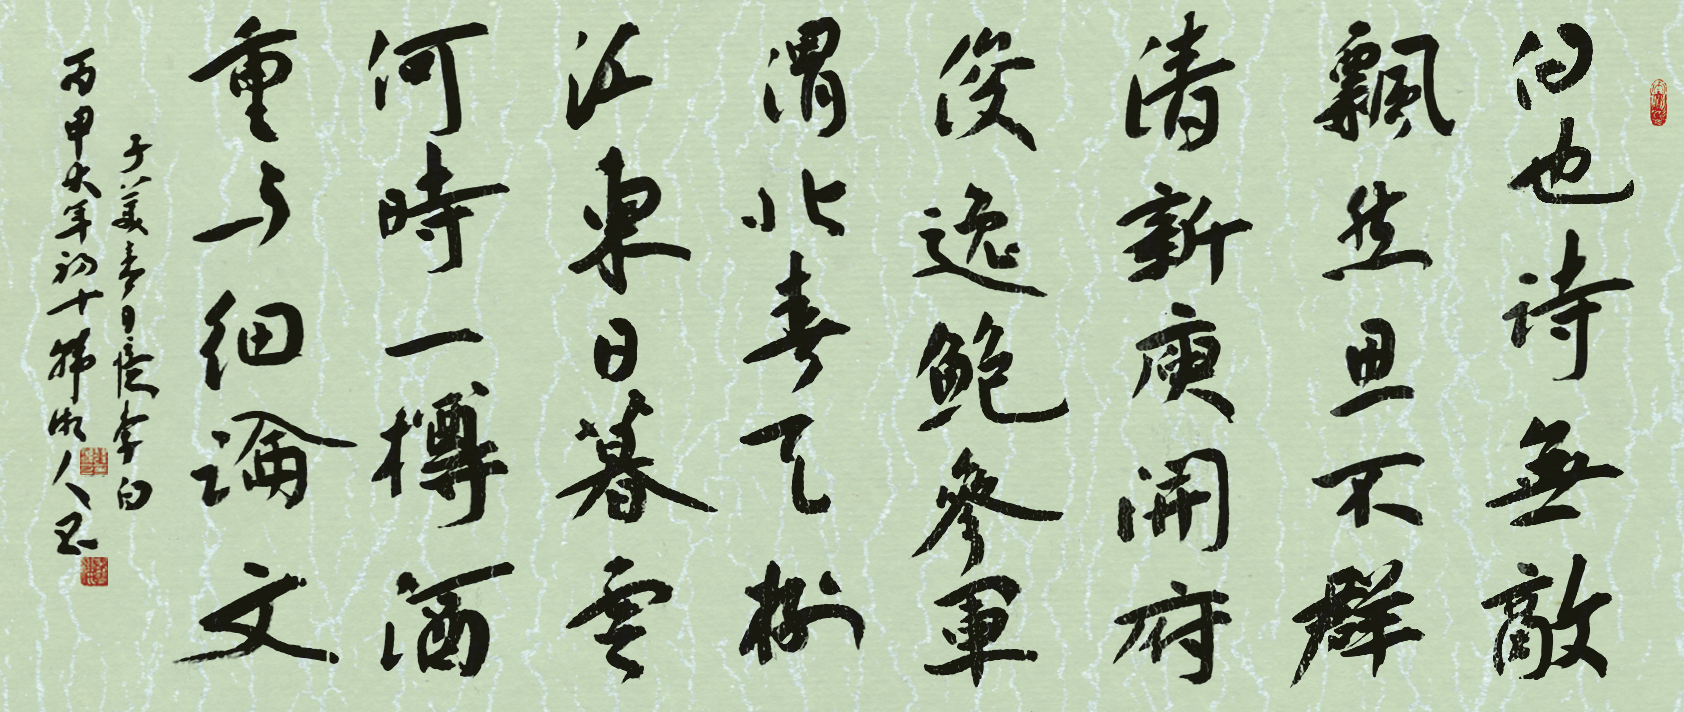 白也詩無敵
飄然思不群
清新庾開府
俊逸鮑參軍
渭北春天樹
江東日暮雲
何時一樽酒
重与細論文
子美春日憶李白
丙申大年初十